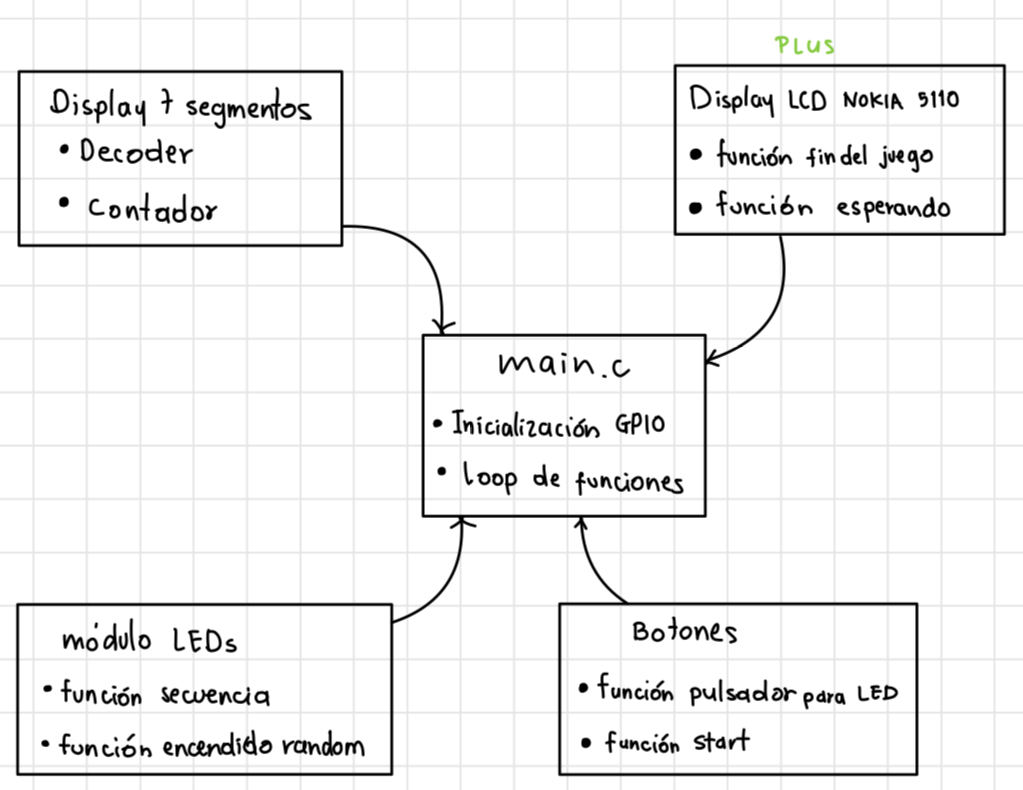 Display 7 segmentos
• Decoder
• Contador
PLUS
Display LCD NOKIA 5110
• función fin del juego
• función esperando
main.c
• Inicialización GPIO
• loop de funciones
módulo LEDs
• función secuencia
• función encendido random
Botones
• función pulsador para LED
• función start